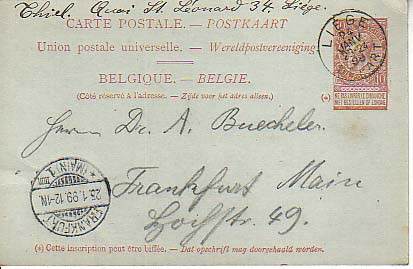 Thiel. Quai St. Léonard 34. Liège.
CARTE POSTALE. — POSTKAART
Union postale universelle. — Wereldpostvereeniging
BELGIQUE. — BELGIE.
(Côté réservé à l'adresse. — Zijde voor het adres alleen.)
(*)
LIÉGE
24
JANV
1899
10
NE PAS LIVRER LE DIMANCHE
NIET BESTELLEN OP ZONDAG
Herrn Dr. A. Buecheler.
Frankfurt Main
Hochstr. 49.
FRANKFURT
25.1.99.12-1N.
*(MAIN)1
(*) Cette inscription peut être biffée. — Dat opschrift mag doorgehaald worden.